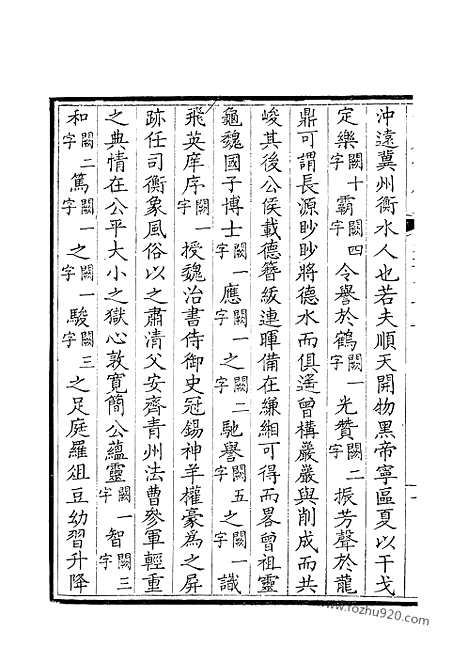 沖遠冀州衡水人也若夫順天開物黑帝寧區夏以干戈
定樂闕十字霸闕四字令譽於鶴闕一字光贊闕二字振芳聲於龍
鼎可謂長源眇眇將德水而俱遙曾構嚴嚴與削成而共
峻其後公侯載德簪紱連暉備在縑緗可得而畧曾祖靈
龜魏國子博士闕一字應闕一字之闕二字馳譽闕五字之闕一字識
飛英庠序闕一字授魏治書侍御史冠錫神羊權豪為之屏
跡任司衡象風俗以之肅清父安齊青州法曹參軍輕重
之典情在公平大小之獄心敦寬簡公蘊靈闕一字智闕三字
和闕二字篤闕一字之闕一字駿闕三字之足庭羅俎豆幼習升降
www.fozhu920.com